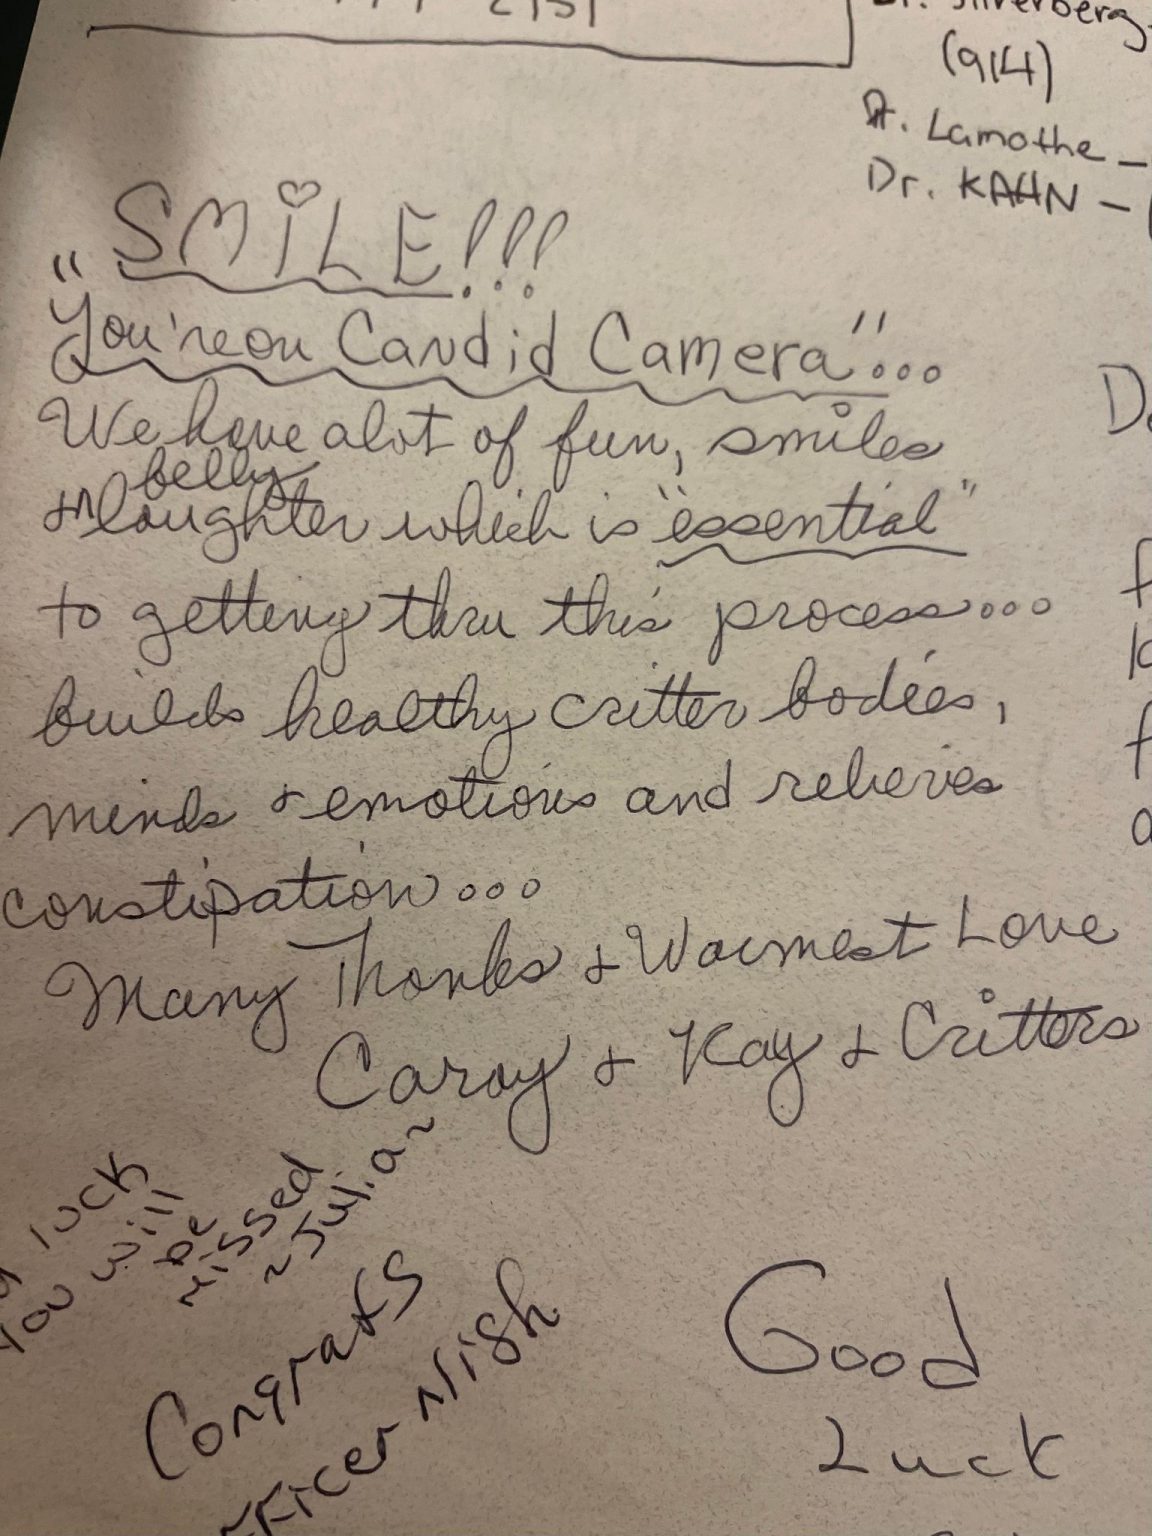 Dr. Silverberg
(914)
Dr. Lamothe –
Dr. KAHN –
"SMiLE!!!
You're on Candid Camera"...
We have alot of fun, smiles
belly
laughter which is "essential"
to getting thru this process...
builds healthy critter bodies,
minds & emotions and relieves
constipation...
Many Thanks & Warmest Love
Caroy & Kay & Critters
luck
You will
be
missed
~Julia~
Congrats
Good
Luck